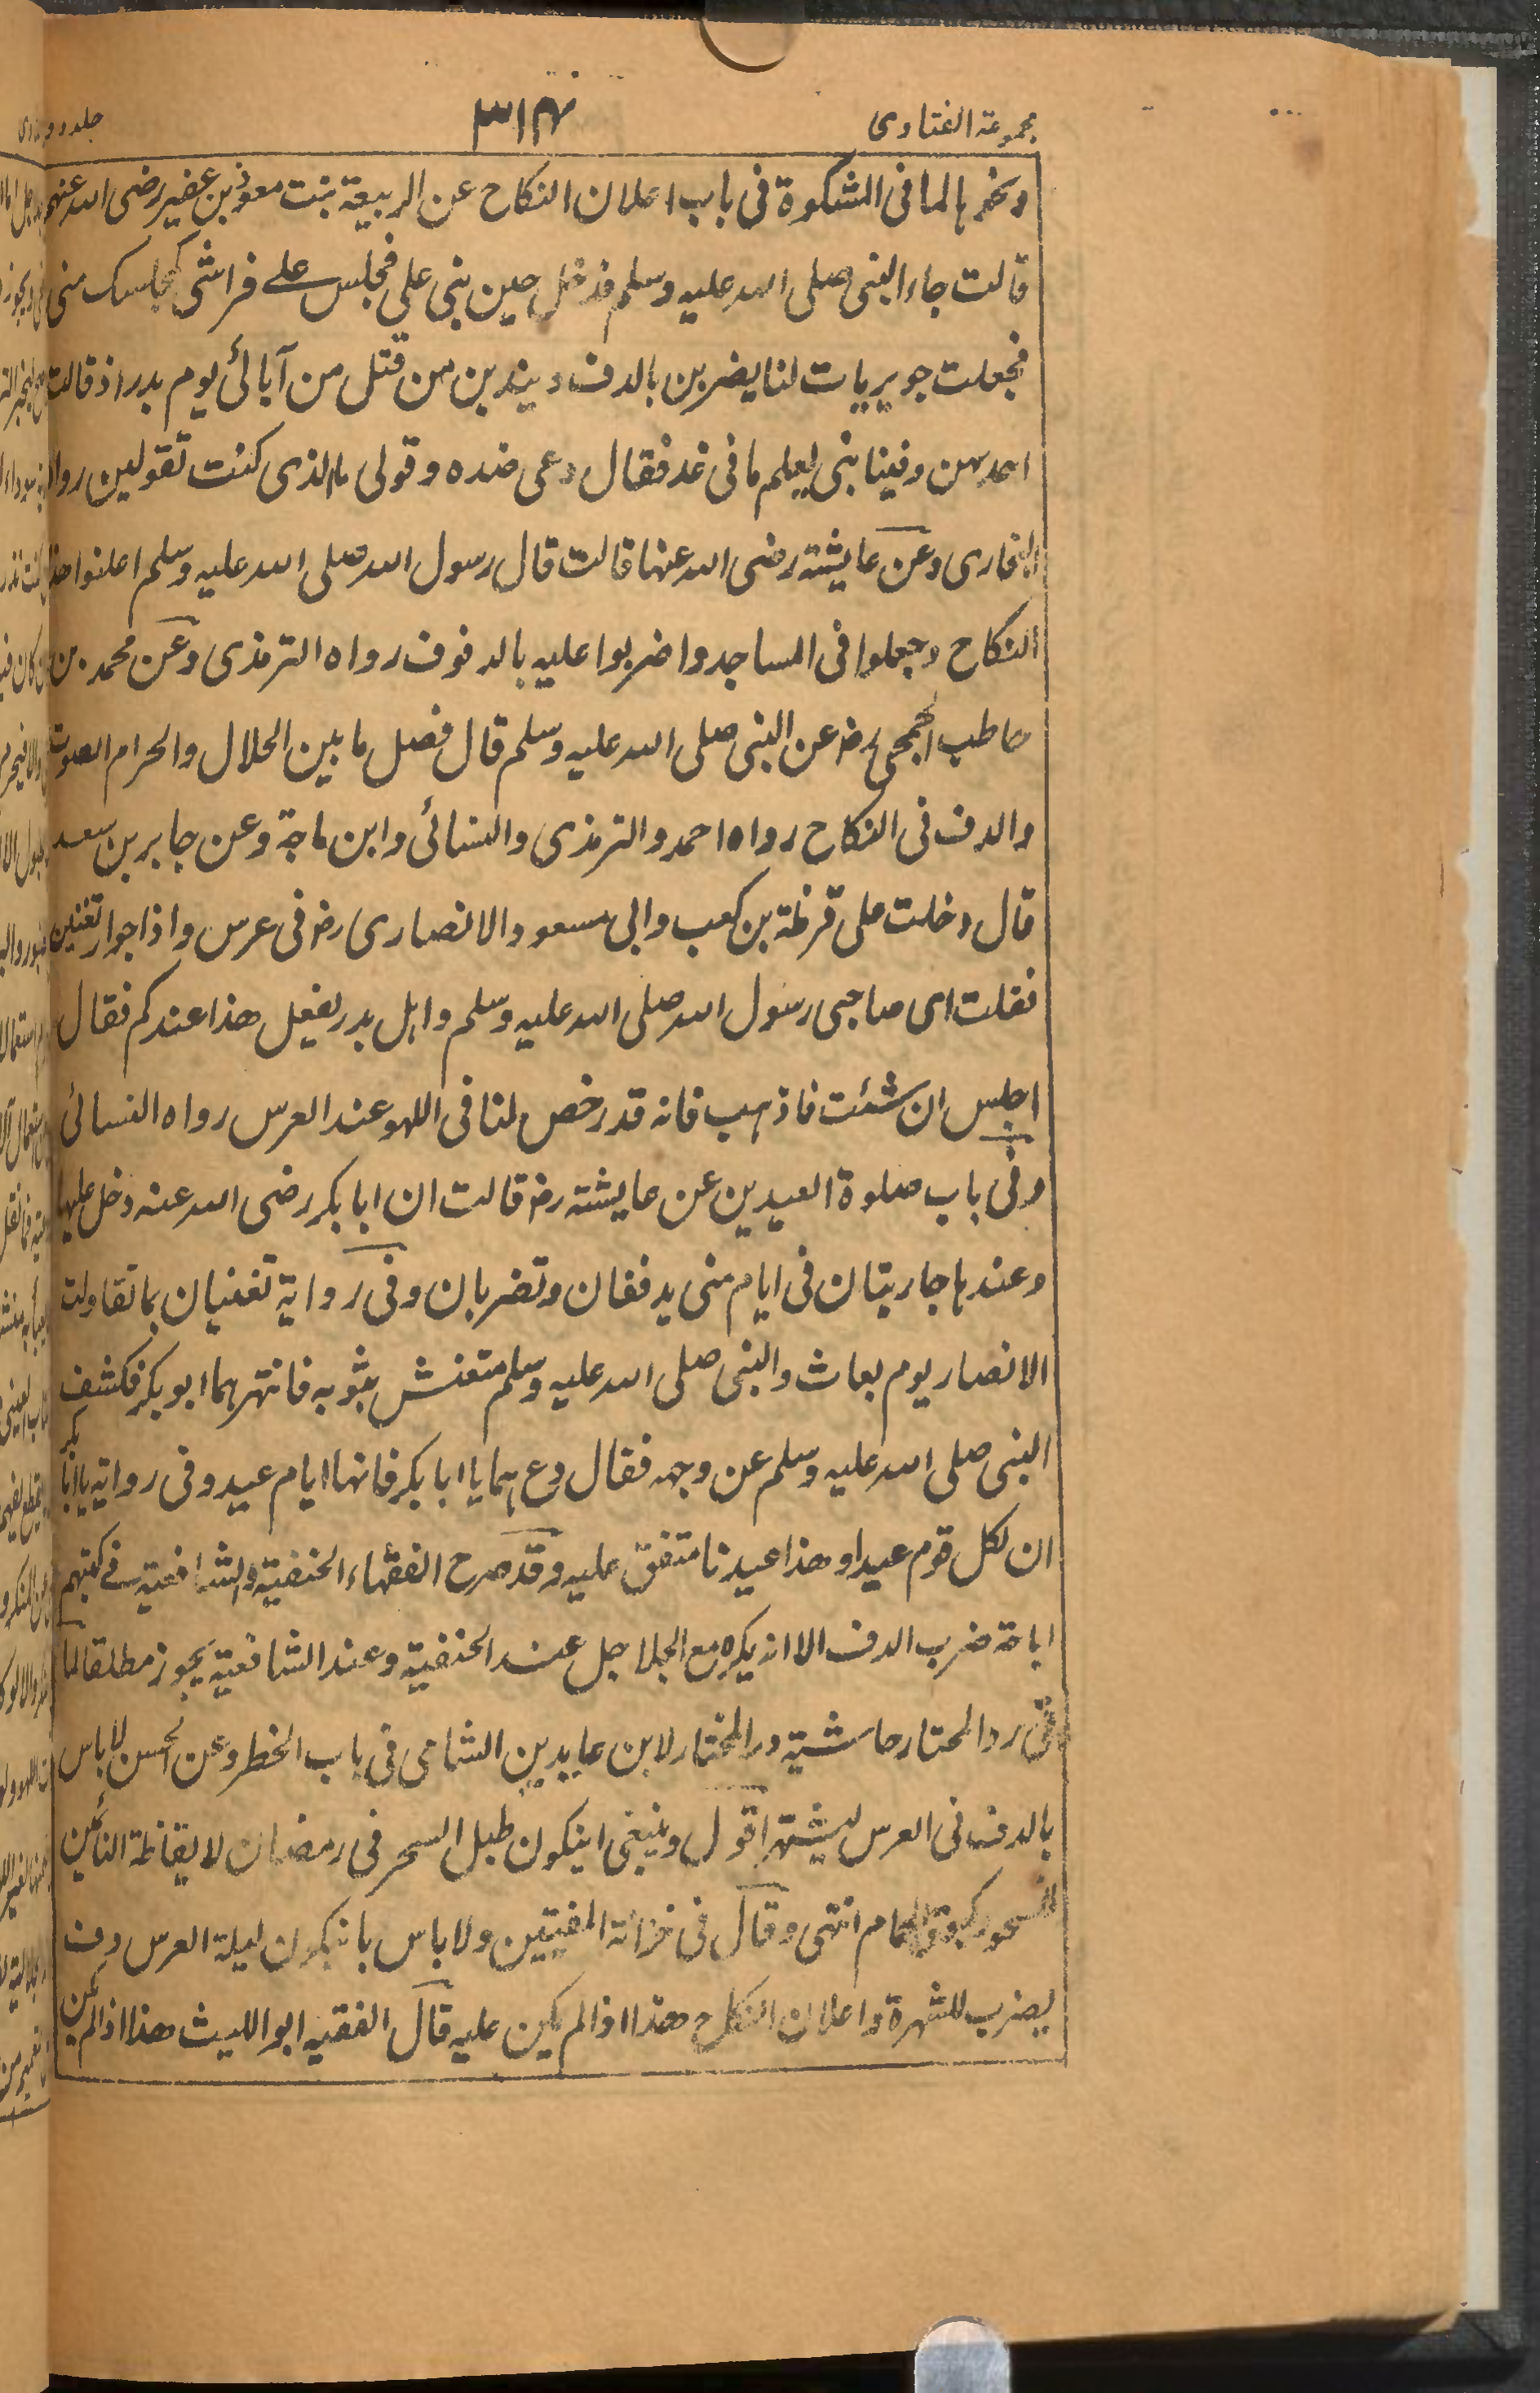 مجموعة الفتاوى
٣١٣
ونحوها لما فى المشكوة فى باب اعلان النكاح عن الربيعة بنت معوذ بن عفير رضى الله عنهم
قالت جاء النبى صلى الله عليه وسلم فدخل حين بنى على فجلس على فراشى كمجلسك منى
فجعلت جويريات لنا يضربن بالدف ويندبن من قتل من آبائى يوم بدر اذ قالت
احدهن وفينا نبى يعلم ما فى غد فقال دعى هذه وقولى بالذى كنت تقولين رواه
البخارى وعن عايشة رضى الله عنها قالت قال رسول الله صلى الله عليه وسلم اعلنوا هذا
النكاح وجعلوا فى المساجد واضربوا عليه بالدفوف رواه الترمذى وعن محمد بن
حاطب الجمحى رض عن النبى صلى الله عليه وسلم قال فصل ما بين الحلال والحرام الصوت
والدف فى النكاح رواه احمد والترمذى والنسائى وابن ماجة وعن جابر بن سعد
قال دخلت على قرظة بن كعب وابى مسعود الانصارى رض فى عرس واذا جوار تغنين
فقلت اى صاحبى رسول الله صلى الله عليه وسلم واهل بدر يفعل هذا عندكم فقال
اجلس ان شئت فاذهب فانه قد رخص لنا فى اللهو عند العرس رواه النسائى
وفى باب صلوة العيدين عن عايشة رض قالت ان ابا بكر رضى الله عنه دخل عليها
وعندها جاريتان فى ايام منى يدففان وتضربان وفى رواية تغنيان بما تقاولت
الانصار يوم بعاث والنبى صلى الله عليه وسلم متغش بثوبه فانتهرهما ابو بكر فكشف
النبى صلى الله عليه وسلم عن وجهه فقال دعهما يا ابا بكر فانها ايام عيد وفى رواية يا ابا بكر
ان لكل قوم عيدا وهذا عيدنا متفق عليه وقد صرح الفقهاء الحنفية والشافعية فى كتبهم
اباحة ضرب الدف الا انه يكره مع الجلاجل عند الحنفية وعند الشافعية يجوز مطلقا لما
فى رد المحتار حاشية در المختار لابن عابدين الشامى فى باب الخطر وعن الحسن لا باس
بالدف فى العرس ليشتهر اقول وينبغى اينكون طبل السحر فى رمضان لايقاظة النائمين
للسحور كبوق الحمام انتهى وقال فى خزانة المفتيين ولا باس بانيكون ليلة العرس دف
يضرب للشهرة واعلان النكاح هذا اذا لم يكن عليه قال الفقيه ابو الليث هذا اذا لم يكن